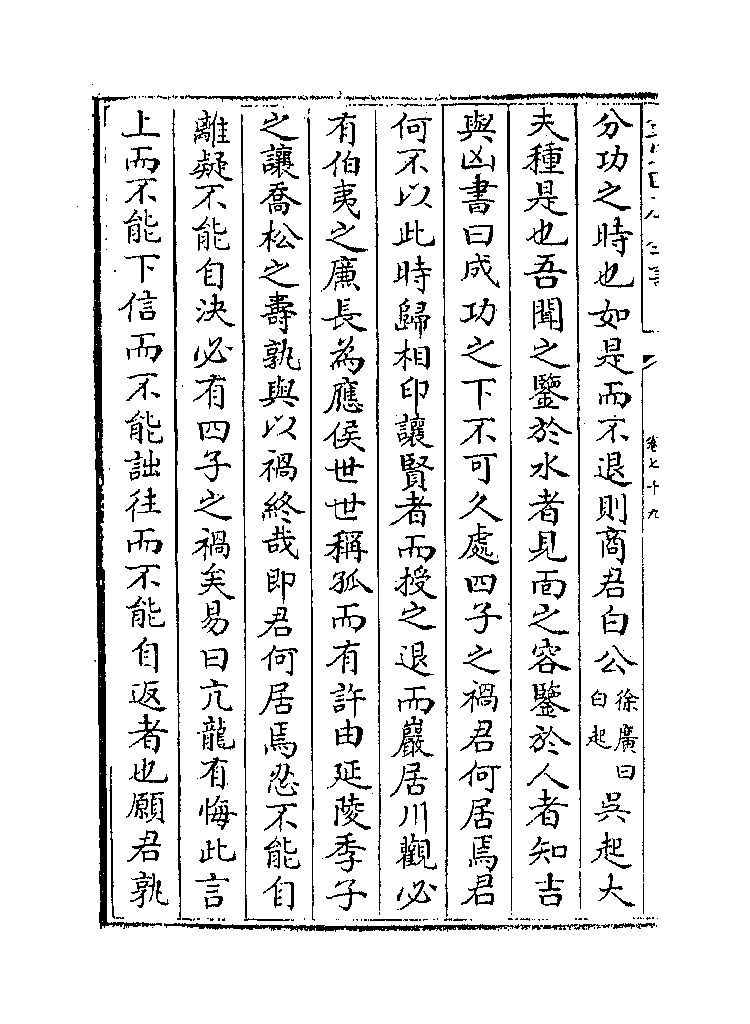 卷七十九
分功之時也如是而不退則商君白公徐廣曰白起吳起大
夫種是也吾聞之鑒於水者見面之容鑒於人者知吉
與凶書曰成功之下不可久處四子之禍君何居焉君
何不以此時歸相印讓賢者而授之退而巖居川觀必
有伯夷之廉長為應侯世世稱孤而有許由延陵季子
之讓喬松之壽孰與以禍終哉即君何居焉忍不能自
離疑不能自決必有四子之禍矣易曰亢龍有悔此言
上而不能下信而不能詘往而不能自返者也願君孰